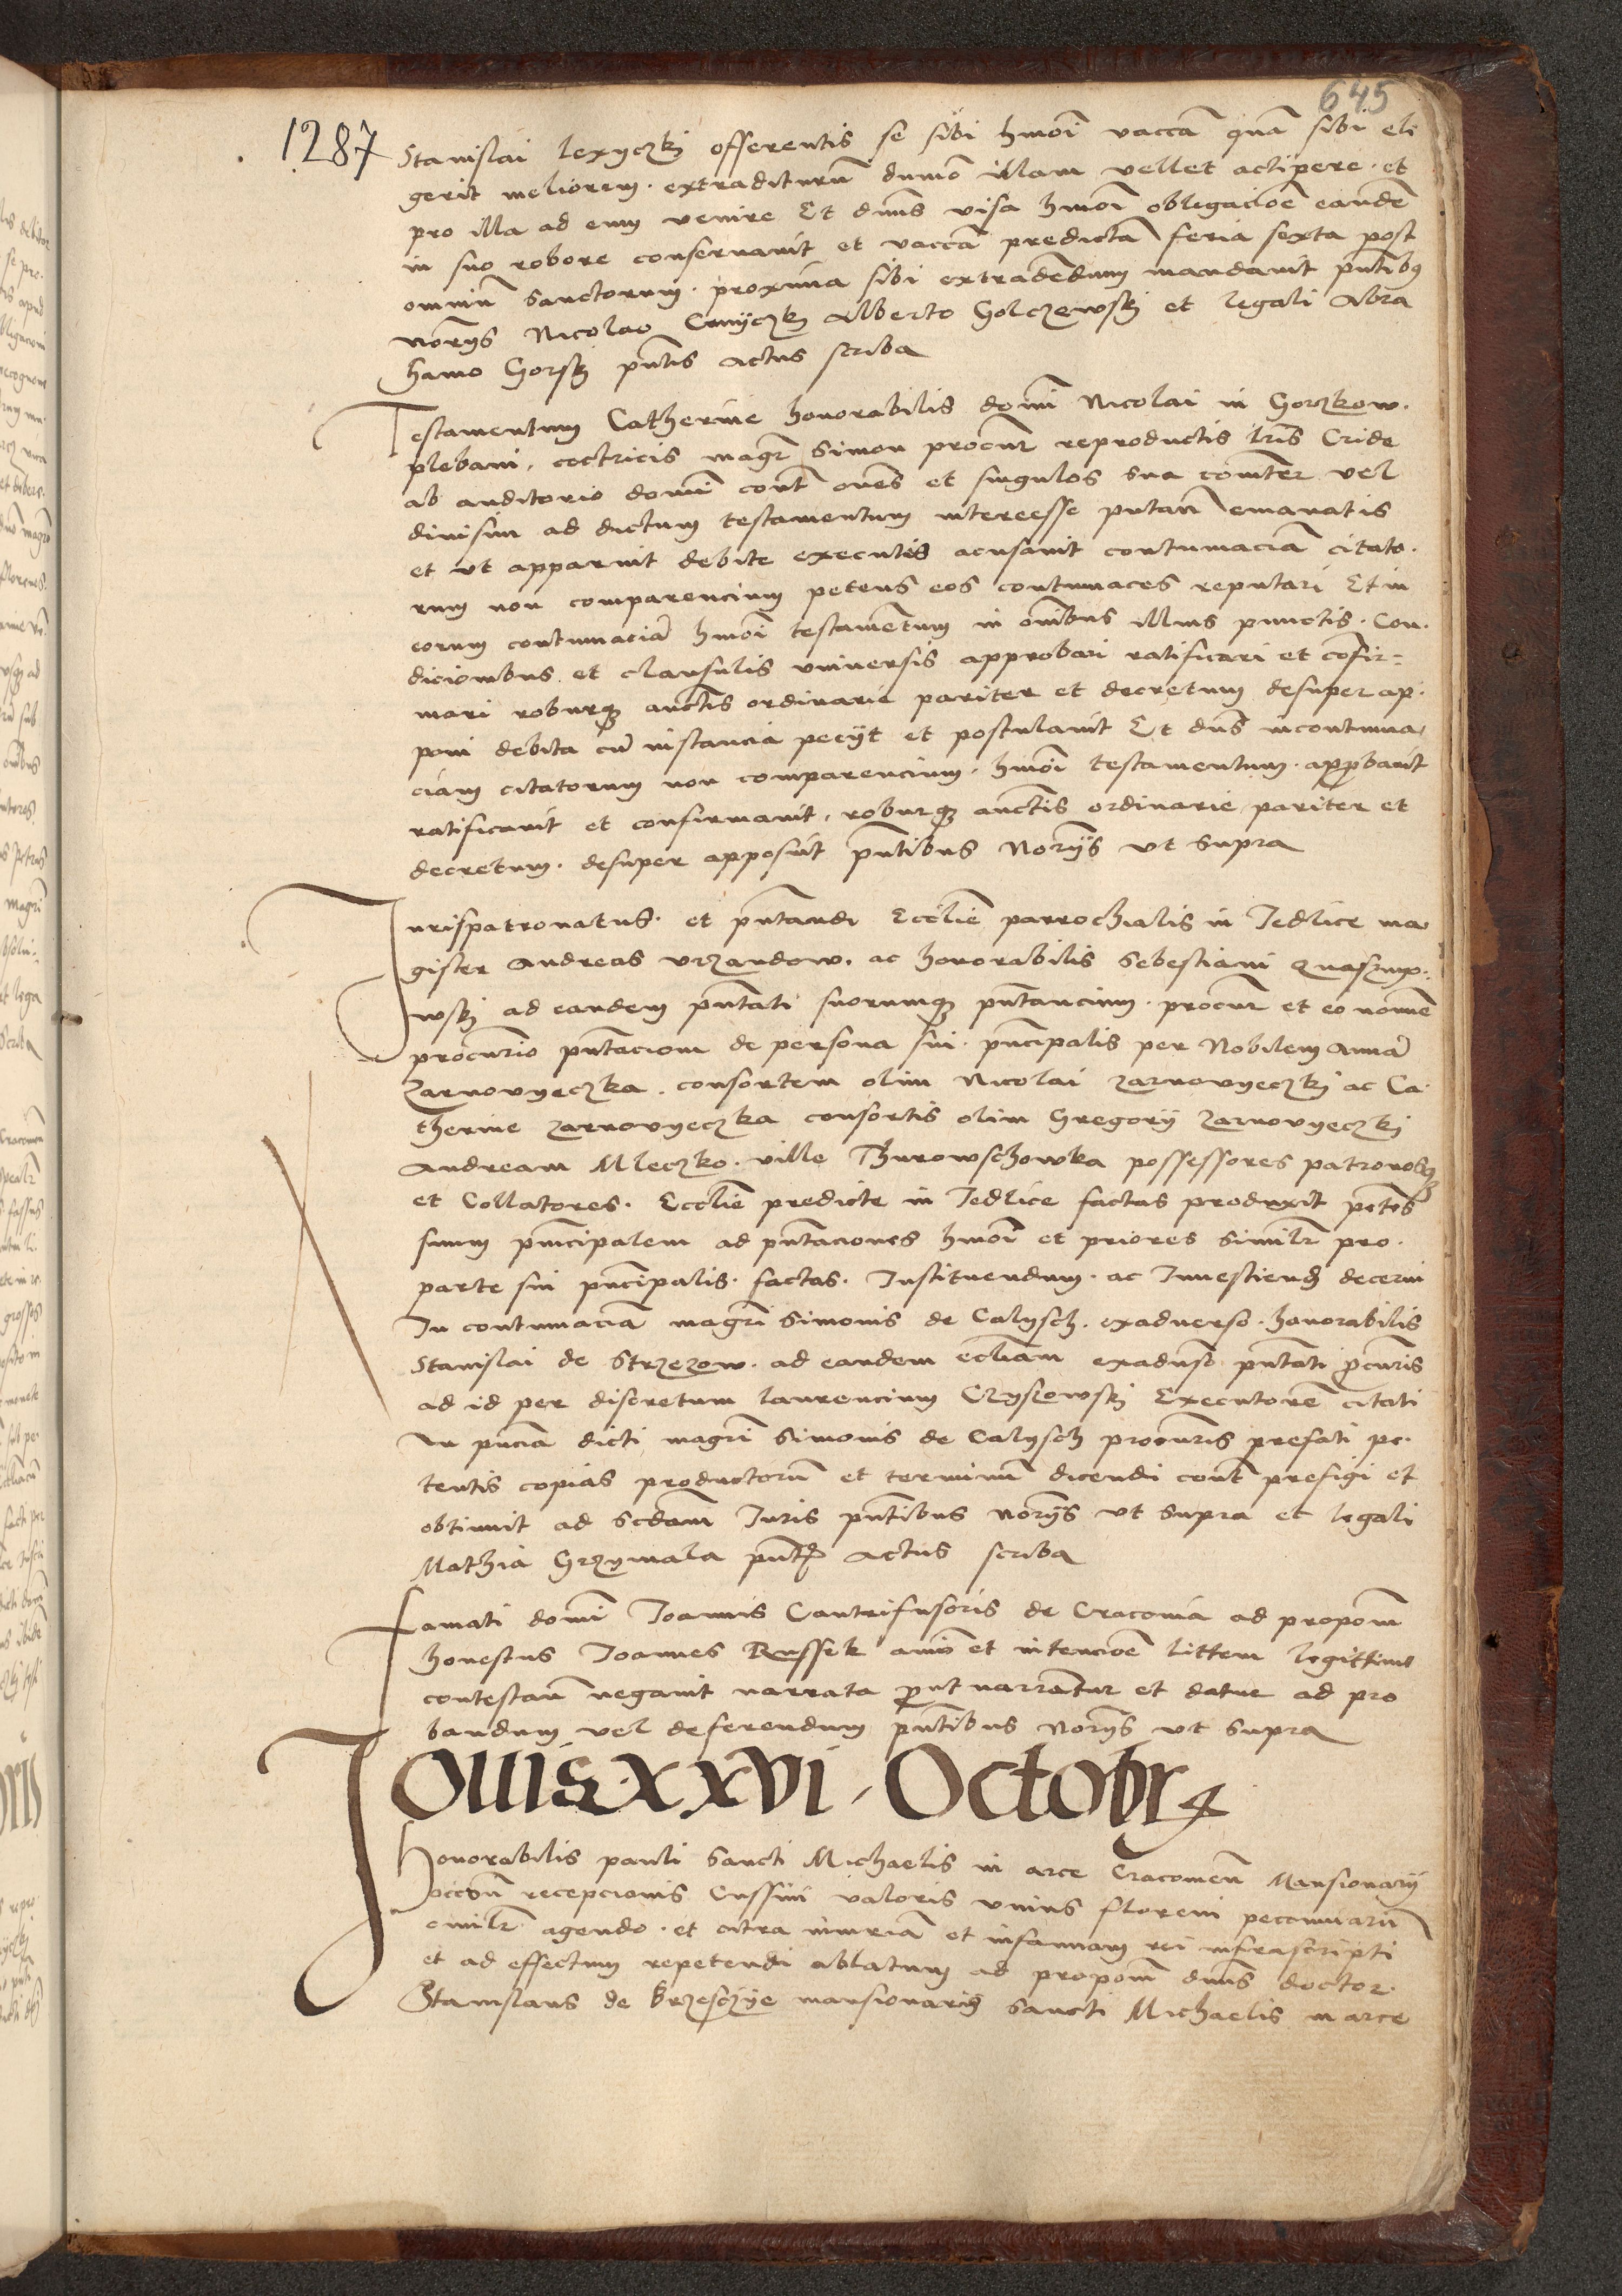 645
1287
Stanislai Lexyczkj offerentis se sibi hmoi vaccã quã sibi eli
gerit meliorem. extraditurũ dumo illam vellet actipere. et
pro illa ad eum venire Et dnus visa hmoi obligacioẽ eandẽ
in suo robore conservavit et vaccã predictã feria sexta post
omniũ Sanctorum. proxima sibi extradẽdum mandavit pntibus
norijs Nicolao Alberto Golczewskj et legali Abra
hamo Gorskj pntis actus scriba
Testamentum Catherine honorabilis domi Nicolai in Gorzkow.
plebani, coctricis magr Simon procur reproductis lris Cride
ab auditorio domi cont oñes et singulos sua coniter vel
divisim ad dictum testamentum interesse putañ emanatis
et ut apparuit debite executis acusavit contumaciã citato.
rum non comparencium petens eos contumaces reputari Et in
eorum contumaciã hmoi testamẽtum in oĩbus illius punctis. Con.
dicionibus et clausulis universis approbari ratificari et cõfir=
mari roburque auctis ordinarie pariter et decretum desuper ap.
poni debita cũ instancia pecijt et postulavit Et dns in contuma
ciam citatorum non comparencium. hmoi testamentum. approbavit
ratificavit et confirmavit, roburque auctis ordinarie pariter et
decretum. desuper apposuit pntibus Norijs ut supra
Jurispatronatus. et pntandi Ecclie parrochialis in Jedlice ma
gister Andreas Vrzandow. ac honorabilis Sebestiani
wskj ad eandem pntati suorumque pntancium. procur et eo nomine
procurio pntacionem de persona sui. pncipalis per Nobilem Annã
Zarnovyeczka. consortem olim Nicolai Zarnovyeczkj ac Ca
therine Zarnovyeczka consortis olim Gregorij Zarnovyeczkj
Andream Mleczko. ville Thurowschowka possessores patronosque
et Collatores. Ecclie predicte in Jedlice factas produxit petes
suum principalem ad pntaciones hmoi et priores similr pro.
parte sui pncipalis. factas. Instituendum. ac Investiend decerni
In contumaciã magri Simonis de Calysch. exadverso. honorabilis
Stanislai de Strzezow. ad eandem ecliam exadverso pntati procuris
ad id per discretum Laurencium Czyszowskj Executorẽ citati
In pnciã dicti magri Simonis de Calysch procuris prefati pe.
tentis copias productorũ et terminũ dicendi cont prefigi et
obtinuit ad scdam Juris pntibus norijs ut supra et legali
Mathia Grzymala pntis actus scriba
Famati domi Joannis Cantrifusoris de Cracovia ad proponem
honestus Joannes Russek anio et intencioẽ littem legittime
contestañ negavit narrata prout narrantur et datur ad pro
bandum vel deferendum pntibus Norijs ut supra
Jovis. xxvi. Octobris
Honorabilis Pauli Sancti Michaelis in arce Cracovien Mansionarij
occõne recepcionis Cussini valoris unius floreni pecuniarũ
civilr agendo. et citra iniuriã et infamiam rei infrascripti
et ad effectum repetendi ablatum ad proponem dnus doctor.
Stanislaus de Brzesczye mansionarius Sancti Michaelis in arce